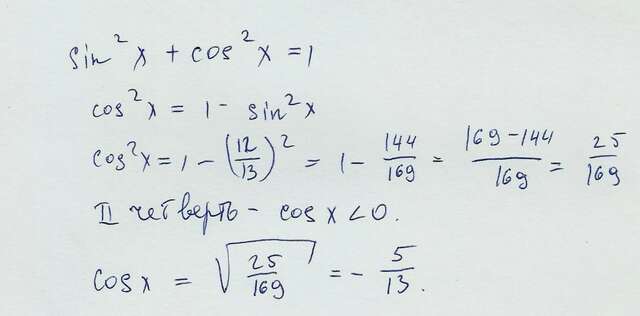 sin²x + cos²x = 1
cos²x = 1 - sin²x
cos²x = 1 - (12/13)² = 1 - 144/169 = (169-144)/169 = 25/169
II четверть - cos x < 0.
cos x = √(25/169) = - 5/13.